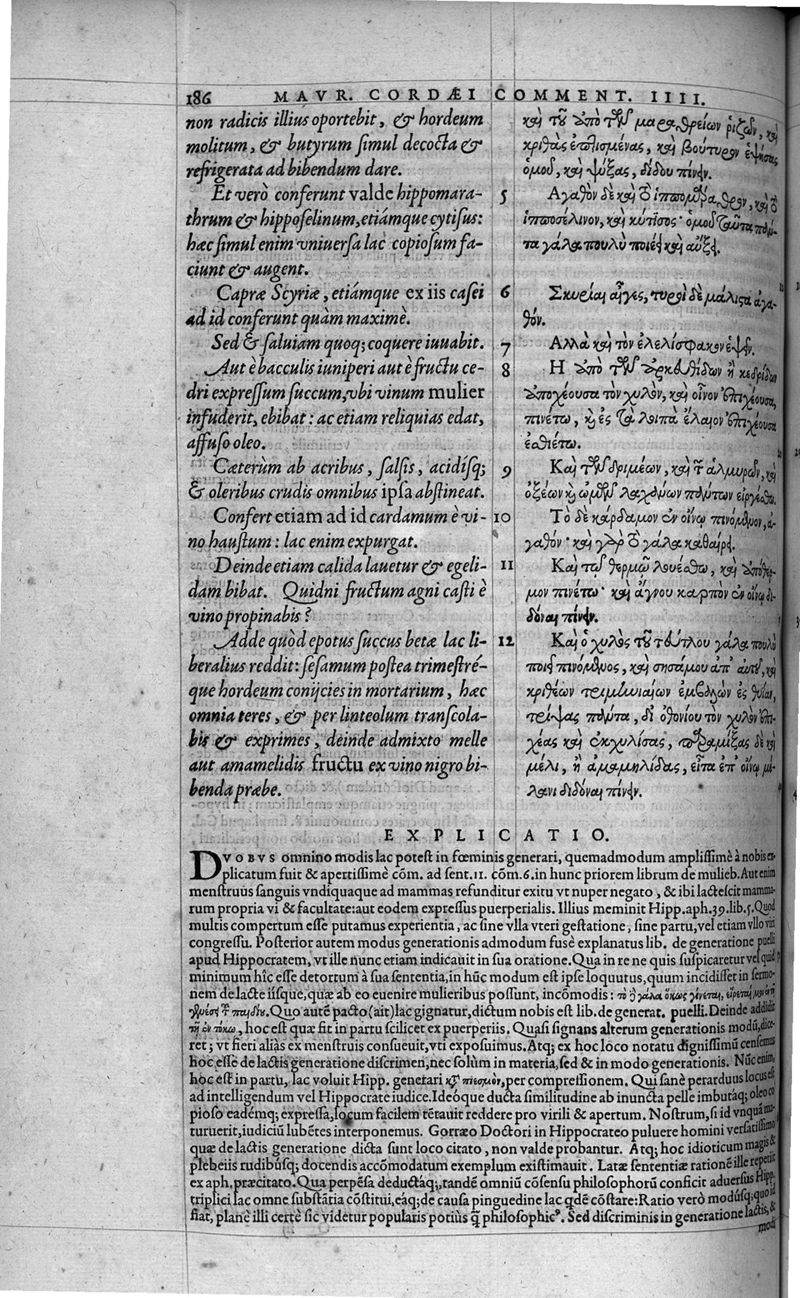 186 MAVR. CORDÆI COMMENT. IIII.
non radicis illius oportebit, & hordeum
molitum, & butyrum simul decocta &
refrigerata ad bibendum dare.
Et verò conferunt valde hippomara-
thrum & hipposelinum, etiámque cytisus:
hæc simul enim vniuersa lac copiosum fa-
ciunt & augent.
Capræ Scyriæ, etiámque ex iis casei
ad id conferunt quàm maximè.
Sed & saluiam quoq; coquere iuuabit.
Aut è bacculis iuniperi aut è fructu ce-
dri expressum succum, vbi vinum mulier
infuderit, ebibat: ac etiam reliquias edat,
affuso oleo.
Cæterùm ab acribus, salsis, acidísq;
& oleribus crudis omnibus ipsa abstineat.
Confert etiam ad id cardamum è vi-
no haustum: lac enim expurgat.
Deinde etiam calida lauetur & egeli-
dam bibat. Quidni fructum agni casti è
vino propinabis?
Adde quòd epotus succus betæ lac li-
beralius reddit: sesamum postea trimestré-
que hordeum conijcies in mortarium, hæc
omnia teres, & per linteolum transcola-
bis & exprimes, deinde admixto melle
aut amamelidis fructu ex vino nigro bi-
benda præbe.
καὶ τοῦ ἀπὸ τῶν μαραθρείων ῥιζῶν, καὶ
κριθὰς ἐπτισμένας, καὶ βούτυρον ἑψήσας
ὁμοῦ, καὶ ψύξας, δίδου πίνειν.
5 Αγαθὸν δὲ καὶ τὸ ἱππομάραθρον, καὶ τὸ
ἱπποσέλινον, καὶ κύτισος· ὁμοῦ ταῦτα πάν-
τα γάλα πουλὺ ποιέει καὶ αὔξει.
6 Σκυρίαι αἶγες, τυροὶ δὲ μάλιστα ἀγα-
θόν.
7 Αλλὰ καὶ τὸν ἐλελίσφακον ἕψειν.
8 Η ἀπὸ τῶν ἀρκευθίδων ἢ κεδρίδων
ἀποχέουσα τὸν χυλὸν, καὶ οἶνον ἐπιχέουσα,
πινέτω, καὶ ἐς τὰ λοιπὰ ἔλαιον ἐπιχέουσα
ἐσθιέτω.
9 Καὶ τῶν δριμέων, καὶ τῶν ἁλμυρῶν, καὶ
ὀξέων καὶ ὠμῶν λαχάνων πάντων εἰργέσθω.
10 Τὸ δὲ κάρδαμον ἐν οἴνῳ πινόμενον, ἀ-
γαθόν· καὶ γὰρ τὸ γάλα καθαίρει.
11 Καὶ τῷ θερμῷ λουέσθω, καὶ ἀπόθερ-
μον πινέτω· καὶ ἄγνου καρπὸν ἐν οἴνῳ δι-
δόναι πίνειν.
12 Καὶ ὁ χυλὸς τοῦ τεύτλου γάλα πουλὺ
ποιεῖ πινόμενος, καὶ σησάμου ἀπ' αὐτοῦ, καὶ
κριθέων τριμηνιαίων ἐμβαλὼν ἐς θυίαν,
τρίψας πάντα, δι' ὀθονίου τὸν χυλὸν ἐπι-
χέας καὶ ἐκχυλίσας, παραμίξας δὲ καὶ
μέλι, ἢ ἀμαμηλίδας, εἶτα ἐπ' οἴνῳ μέ-
λανι διδόναι πίνειν.
EXPLICATIO.
DVOBVS omnino modis lac potest in fœminis generari, quemadmodum amplissimè à nobis ex-
plicatum fuit & apertissimè cōm. ad sent. 11. cōm. 6. in hunc priorem librum de mulieb. Aut enim
menstruus sanguis vndiquaque ad mammas refunditur exitu vt nuper negato, & ibi lactescit mamma-
rum propria vi & facultate: aut eodem expressus puerperialis. Illius meminit Hipp. aph. 39. lib. 5. Quod
multis compertum esse putamus experientia, ac sine vlla vteri gestatione, sine partu, vel etiam vllo viri
congressu. Posterior autem modus generationis admodum fusè explanatus lib. de generatione puelli
apud Hippocratem, vt ille nunc etiam indicauit in sua oratione. Qua in re ne quis suspicaretur vel quid
minimum hîc esse detortum à sua sententia, in hūc modum est ipse loquutus, quum incidisset in sermo-
nem de lacte iisque, quæ ab eo euenire mulieribus possunt, incōmodis: τὸ δὲ γάλα ὅκως γίνεται, εἴρηταί μοι ἐν τῇ
φύσει τοῦ παιδίου. Quo autē pacto (ait) lac gignatur, dictum nobis est lib. de generat. puelli. Deinde addidit
τῇ ἐν τόκῳ, hoc est quæ fit in partu scilicet ex puerperiis. Quasi signans alterum generationis modū, dice-
ret; vt fieri aliàs ex menstruis consueuit, vti exposuimus. Atq; ex hoc loco notatu dignissimū censemus
hoc esse de lactis generatione discrimen, nec solùm in materia, sed & in modo generationis. Nūc enim,
hoc est in partu, lac voluit Hipp. generari κατὰ πιεσμὸν, per compressionem. Qui sanè perarduus locus est
ad intelligendum vel Hippocrate iudice. Ideóque ducta similitudine ab inuncta pelle imbutáq; oleo co-
pioso eadémq; expressa, locum facilem tētauit reddere pro virili & apertum. Nostrum, si id vnquā ma-
turuerit, iudiciū lubētes interponemus. Gorræo Doctori in Hippocrateo puluere homini versatissimo
quæ de lactis generatione dicta sunt loco citato, non valde probantur. Atq; hoc idioticum magis &
plebeiis rudibúsq; docendis accōmodatum exemplum existimauit. Latæ sententiæ rationē ille repetit
ex aph. præcitato. Qua perpēsa deductáq;, tandē omniū cōsensu philosophorū conficit aduersus Hipp.
triplici lac omne substātia cōstitui, eáq; de causa pinguedine lac q̄dē cōstare: Ratio verò modúsq; quo id
fiat, planè illi certè sic videtur popularis potiùs q̄ philosophic⁹. Sed discriminis in generatione lactis, &
modi